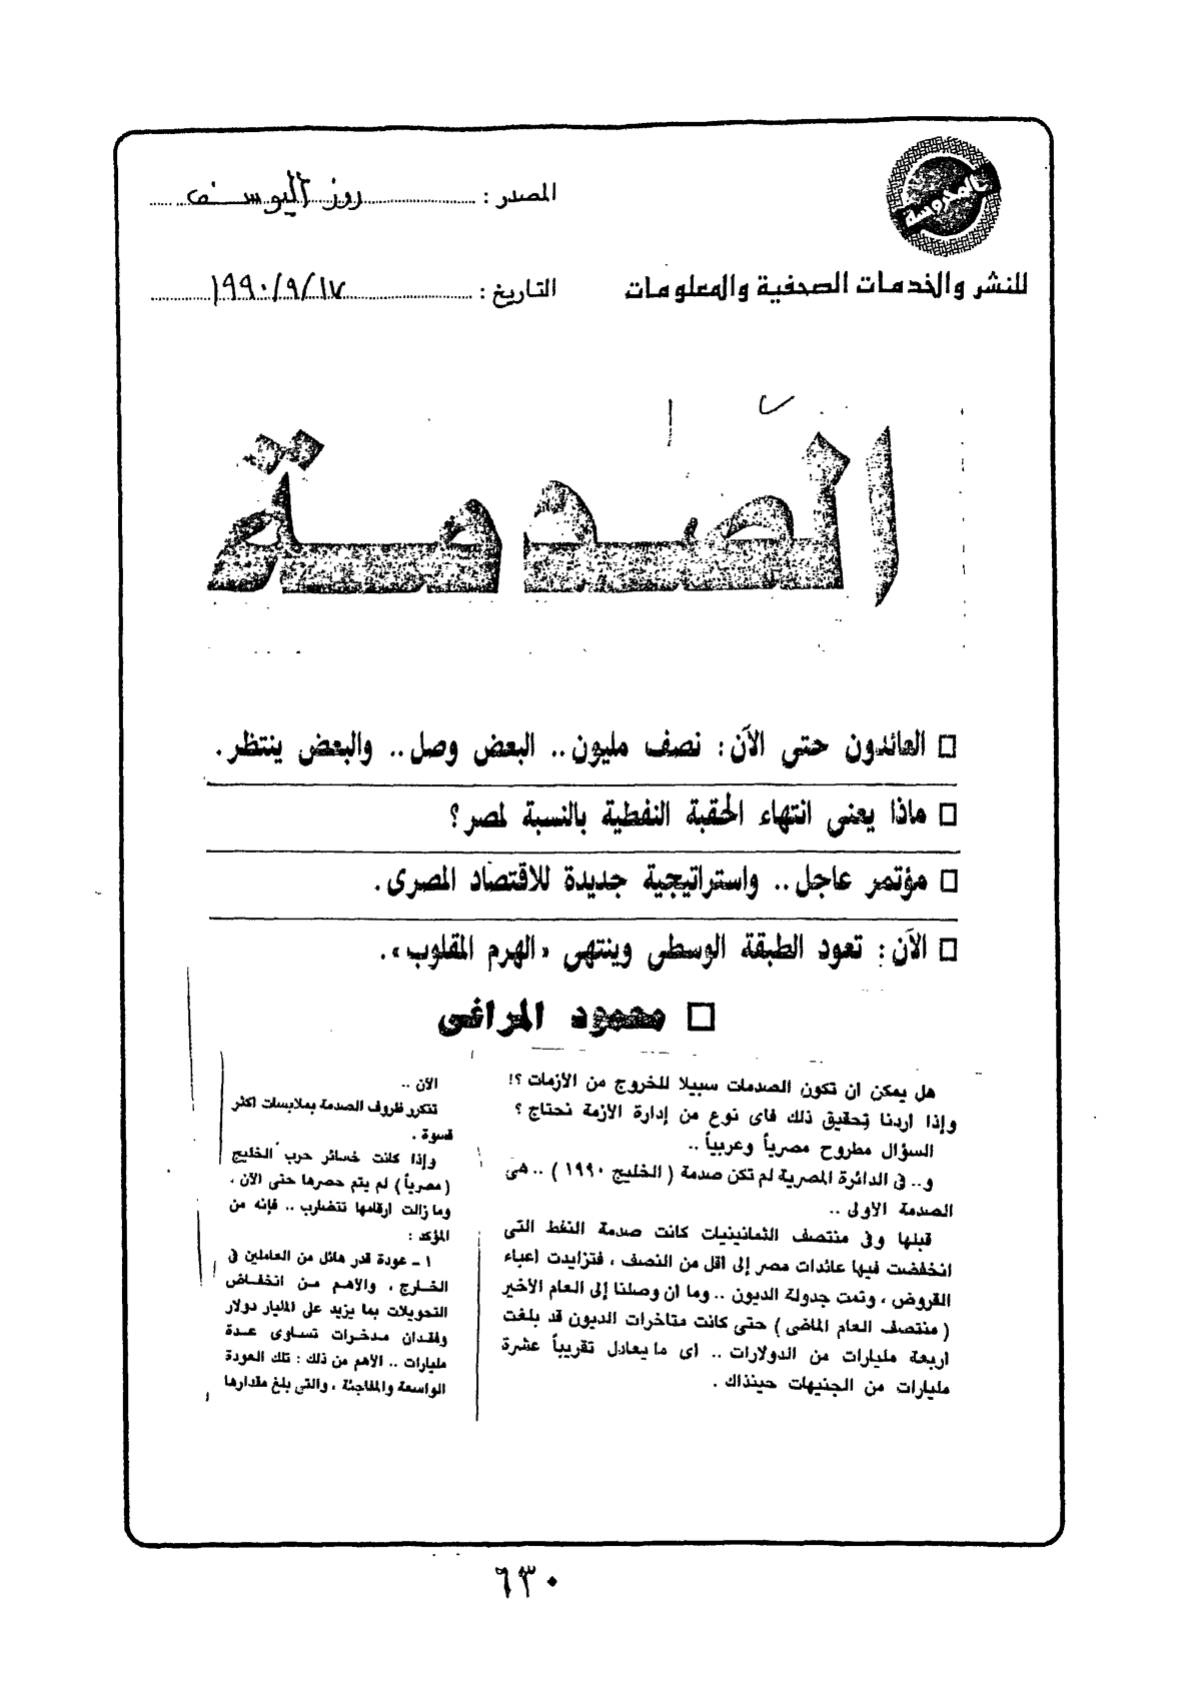 المحروسة
للنشر والخدمات الصحفية والمعلومات
المصدر : روز اليوسف
التاريخ : ١٩٩٠/٩/١٧
الصدمة
□ العائدون حتى الآن : نصف مليون .. البعض وصل .. والبعض ينتظر .
□ ماذا يعنى انتهاء الحقبة النفطية بالنسبة لمصر ؟
□ مؤتمر عاجل .. واستراتيجية جديدة للاقتصاد المصرى .
□ الآن : تعود الطبقة الوسطى وينتهى «الهرم المقلوب» .
□ محمود المراغى
هل يمكن ان تكون الصدمات سبيلا للخروج من الأزمات ؟!
وإذا اردنا تحقيق ذلك فاى نوع من إدارة الأزمة نحتاج ؟
السؤال مطروح مصرياً وعربياً ..
و.. فى الدائرة المصرية لم تكن صدمة ( الخليج ١٩٩٠ ) .. هى
الصدمة الأولى ..
قبلها وفى منتصف الثمانينيات كانت صدمة النفط التى
انخفضت فيها عائدات مصر إلى أقل من النصف ، فتزايدت أعباء
القروض ، وتمت جدولة الديون .. وما ان وصلنا إلى العام الأخير
( منتصف العام الماضى ) حتى كانت متاخرات الديون قد بلغت
اربعة مليارات من الدولارات .. اى ما يعادل تقريباً عشرة
مليارات من الجنيهات حينذاك .
الآن ..
تتكرر ظروف الصدمة بملابسات اكثر
قسوة .
وإذا كانت خسائر حرب الخليج
( مصرياً ) لم يتم حصرها حتى الآن ،
وما زالت ارقامها تتضارب .. فإنه من
المؤكد :
١ - عودة قدر هائل من العاملين فى
الخارج ، والأهم من انخفاض
التحويلات بما يزيد على المليار دولار
وفقدان مدخرات تساوى عدة
مليارات .. الأهم من ذلك : تلك العودة
الواسعة والمفاجئة ، والتى بلغ مقدارها
٦٣٠